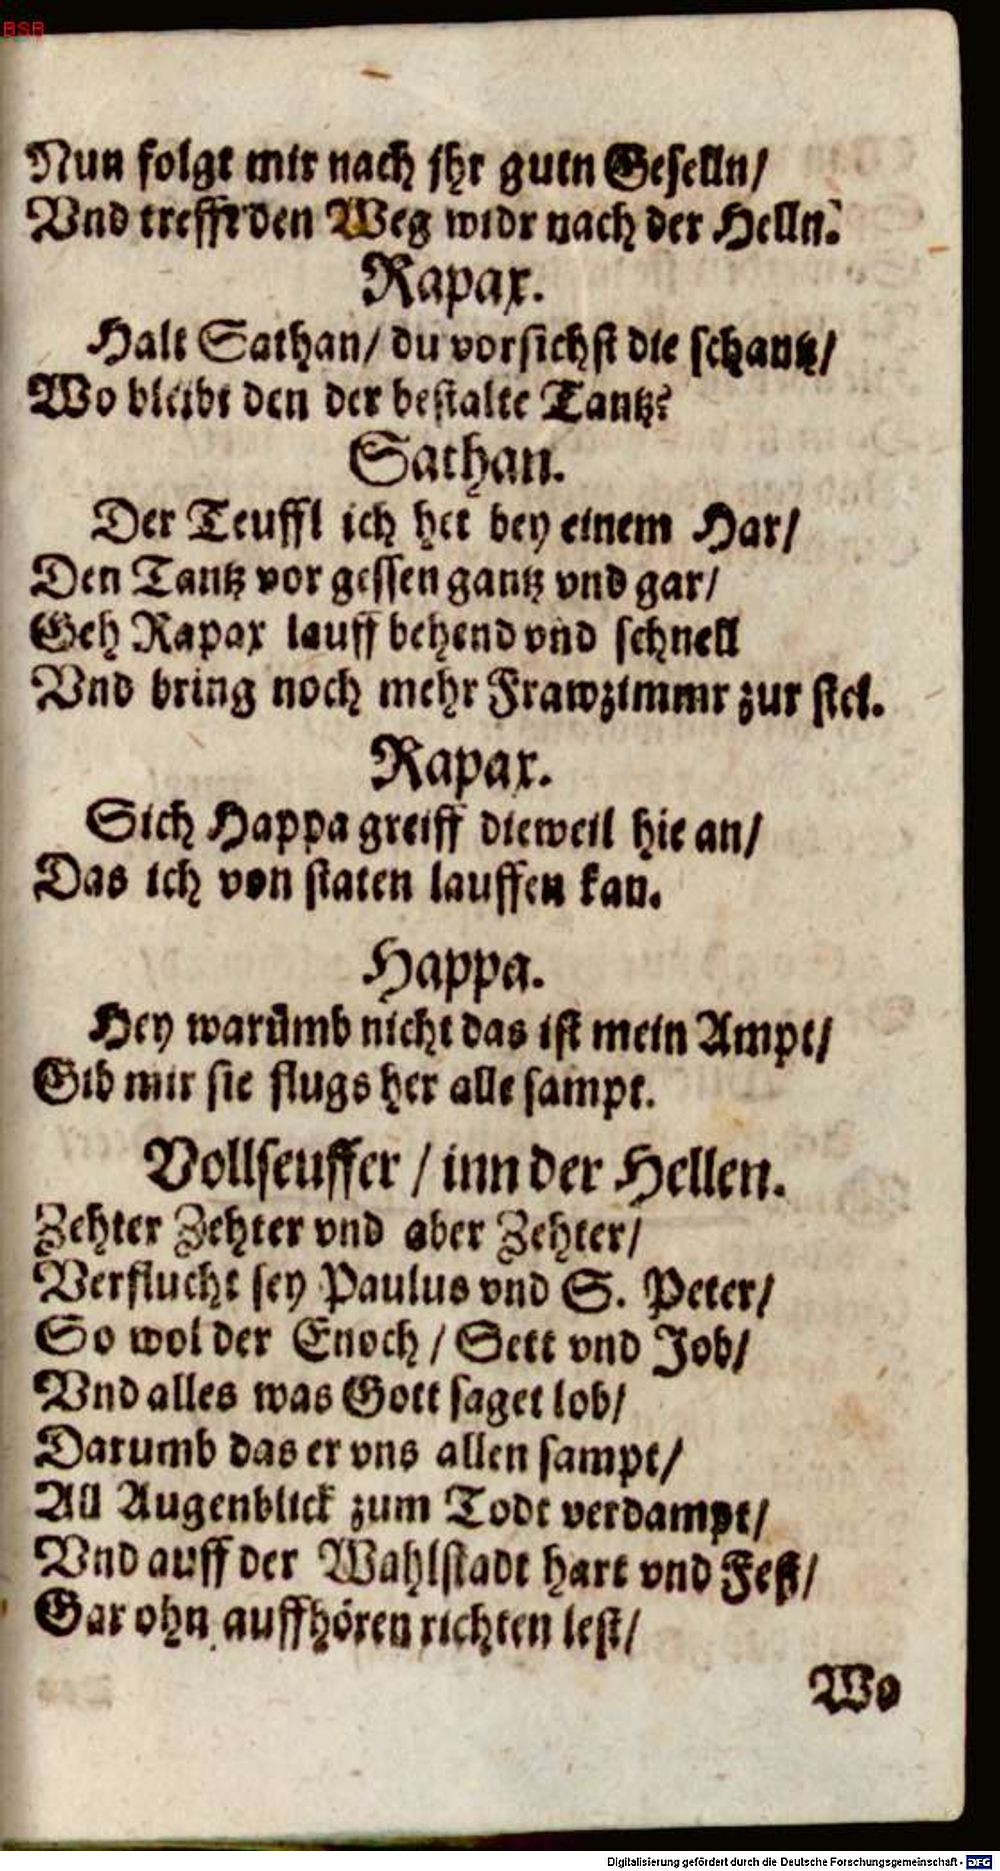 BSB
Nun folgt mir nach jhr gutn Geselln/
Vnd trefft den Weg widr nach der Helln.
Rapax.
Halt Sathan/ du vorsichst die schantz/
Wo bleibt den der bestalte Tantz?
Sathan.
Der Teuffl ich het bey einem Har/
Den Tantz vor gessen gantz vnd gar/
Geh Rapax lauff behend vnd schnell
Vnd bring noch mehr Frawzimmr zur stel.
Rapax.
Sich Happa greiff dieweil hie an/
Das ich von staten lauffen kan.
Happa.
Hey warümb nicht das ist mein Ampt/
Gib mir sie flugs her alle sampt.
Vollseuffer / inn der Hellen.
Zehter Zehter vnd aber Zehter/
Verflucht sey Paulus vnd S. Peter/
So wol der Enoch / Sett vnd Job/
Vnd alles was Gott saget lob/
Darumb das er vns allen sampt/
All Augenblick zum Todt verdampt/
Vnd auff der Wahlstadt hart vnd Fest/
Gar ohn auffhören richten lest/
Wo
Digitalisierung gefördert durch die Deutsche Forschungsgemeinschaft - DFG